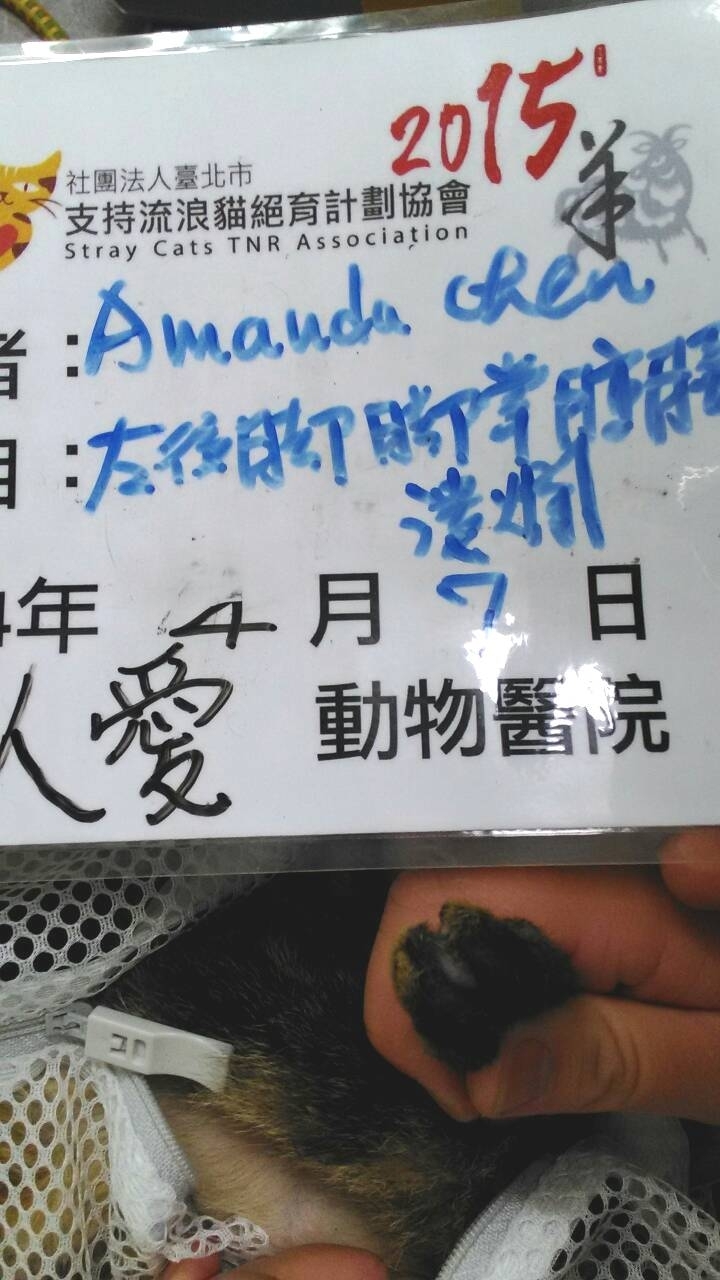 2015
羊
社團法人臺北市
支持流浪貓絕育計劃協會
Stray Cats TNR Association
者：Amanda Chen
目：左後脚脚掌膀腫
潰爛
4年 4 月 7 日
人愛 動物醫院